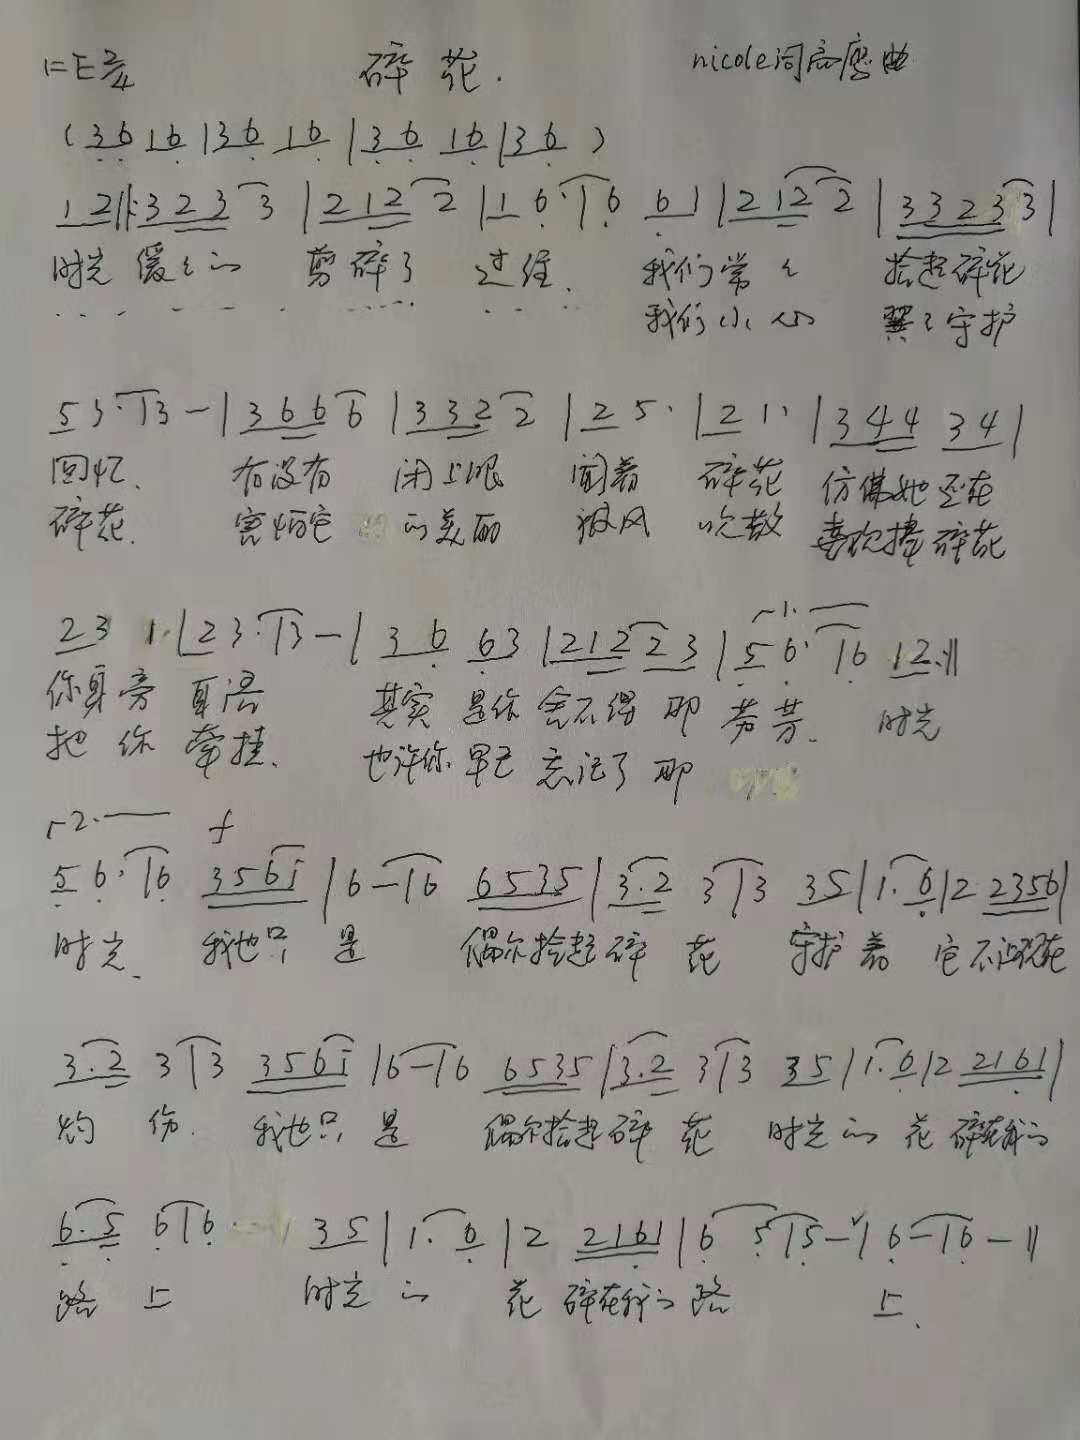 1=E 2/4 碎花. nicole词高鹰曲
(36 16 |36 16 |36 16 |36 )
1 2||:3 2 3 3 |2 1 2 2 |1 6·|1 6 6 1 |2 1 2 2 |3 3 2 3 3|
时光 缓々的 剪碎了 过往. 我们常々 拾起碎花
我们小心 翼々守护
5 3·|3 - |3 6 6 6 |3 3 2 2 |2 5· |2 1· |3 4 4 3 4|
回忆. 有没有 闭上眼 闻着 碎花 仿佛她还在
碎花. 害怕它 的美丽 被风 吹散 喜欢捧碎花
2 3 1·|2 3·|3 - |3 6 6 3 |2 1 2 2 3 |5 6·|6 1 2:||
你身旁 耳语 其实 是你舍不得 那 芬芳. 时光
把你 牵挂. 也许你早已忘记了那
2. f
5 6·|6 3 5 6 i |6 - |6 6 5 3 5 |3·2 3|3 3 5|1·6|2 2 3 5 6|
时光. 我也只是 偶尔拾起碎花 守护着 它不让现在
3·2 3|3 3 5 6 i |6 - |6 6 5 3 5|3·2 3|3 3 5|1·6|2 2 1 6 1|
灼伤. 我也只是 偶尔拾起碎花 时光的花 碎在我的
6·5 6|6 3 5|1·6|2 2 1 6 1|6 5|5 - |6 - |6 - ||
路上 时光的 花 碎在我的路 上.